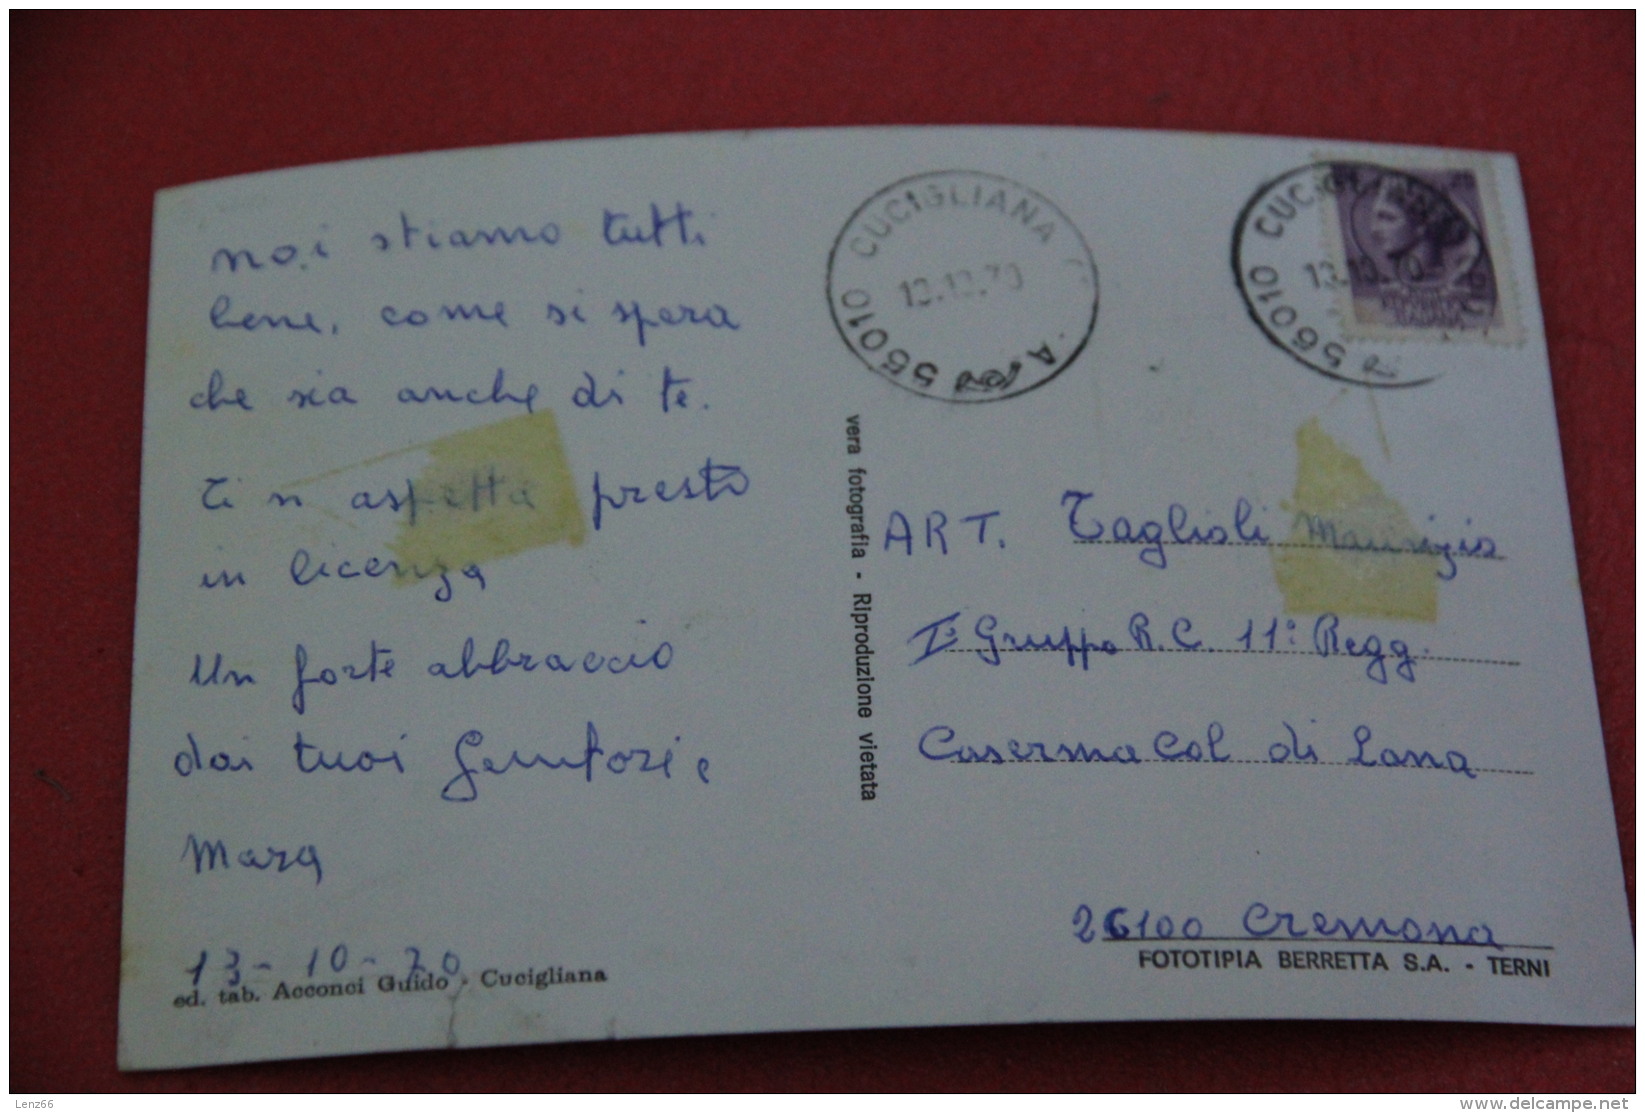 noi stiamo tutti
bene, come si spera
che sia anche di te.
Ti si aspetta presto
in licenza
Un forte abbraccio
dai tuoi Genitori e
Mara
13-10-70
ed. tab. Acconci Guido - Cucigliana
vera fotografia - Riproduzione vietata
56010 CUCIGLIANA
13.10.70
56010 CUCIGLIANA
13.10.70
ART. Taglioli Maurizio
I° Gruppo R.C. 11° Regg.
Caserma Col di Lana
26100 Cremona
FOTOTIPIA BERRETTA S.A. - TERNI
Lenz66
www.delcampe.net